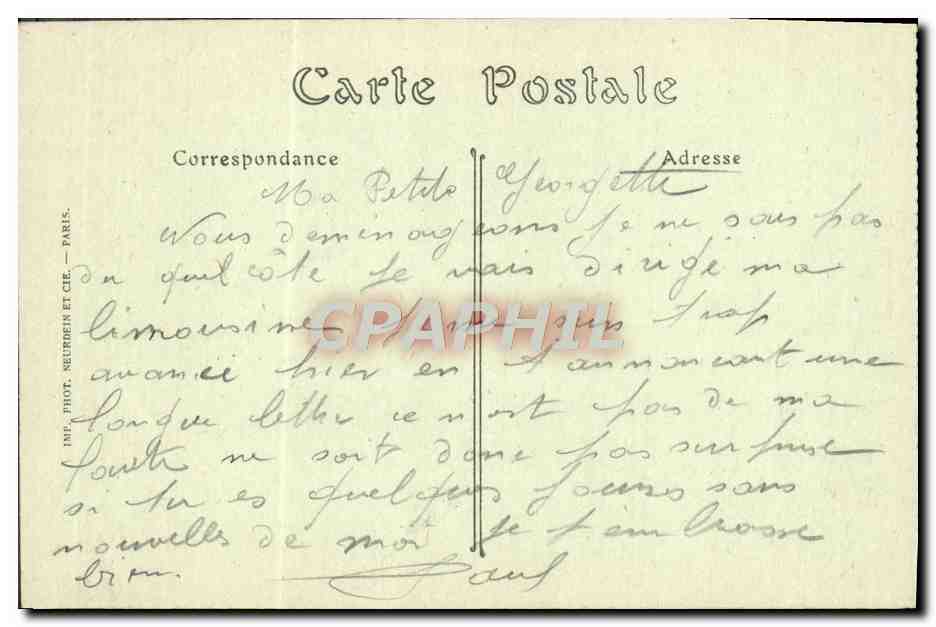 Carte Postale
Correspondance
Adresse
Ma Petite Georgette
Nous déménageons je ne sais pas
du quel côté je vais dirigé ma
limousine je me suis trop
avancé hier en t'annoncant une
longue lettre ce n'est pas de ma
faute ne soit donc pas surprise
si tu es quelques jours sans
nouvelles de moi je t'embrasse
bien. Paul
IMP. PHOT. NEURDEIN ET CIE. — PARIS.
CPAPHIL